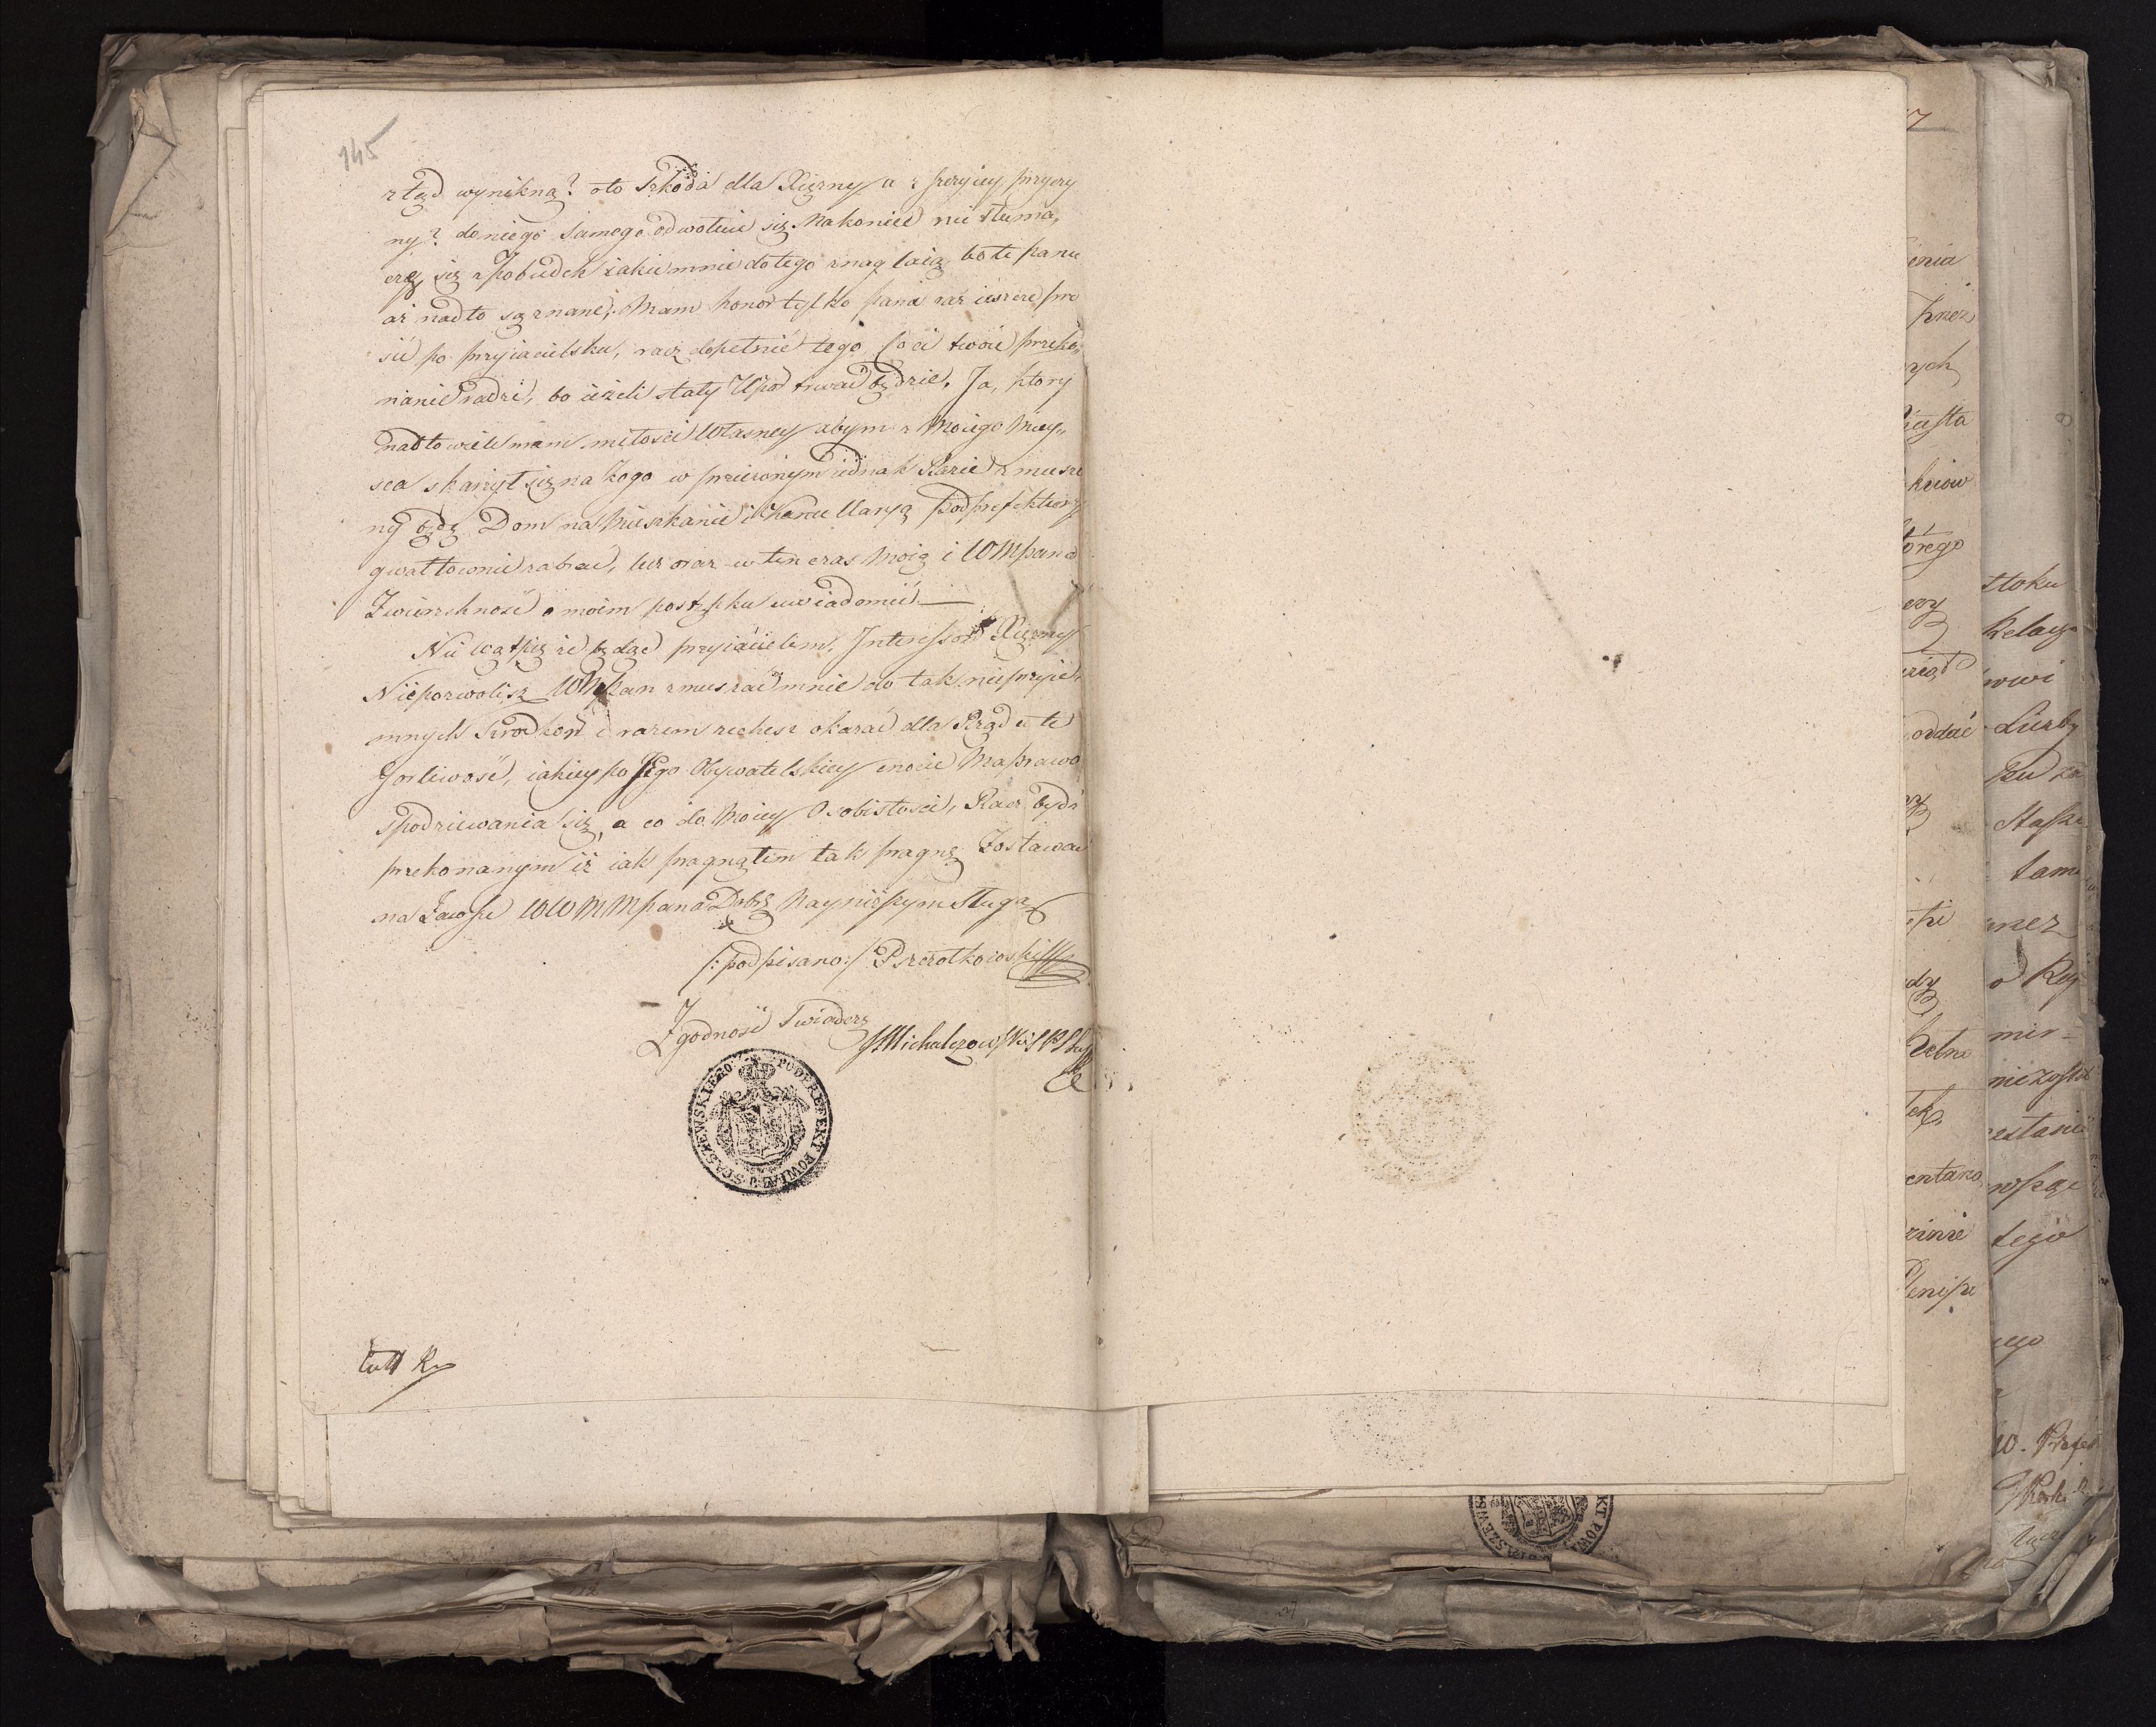 145
ztąd wynikną? oto Szkoda dla Xiężny a z czyiey przyczy
ny? do niego samego odwołuię się Nakoniec nie tłuma,
czę się z Pobudek iakie mnie do tego znaglaią bo te panu
aż nadto są znane, Mam honor tylko pana raz ieszcze pro
sić po przyiacielsku, racz dopełnić tego co ci twoie przeko,
nanie radzi, bo ieżeli stały Upor trwać będzie, Ja, ktory
nadto wiele mam miłości Własney abym z Moiego Miey,,
sca skarżył się na kogo w przeciwnym iednak Razie zmuszo
ny będę Dom na Mieszkanie i Kancellaryą Podprefektury
gwałtownie zabrać, lecz oraz w ten czas Moią i WMpana
Zwierzchność o moim postępku uwiadomić.—
Nie wątpię że będąc przyiacielem, Interessow Xiężny
Niepozwolisz WMPan zmuszać mnie do tak nieprzyie,
mnych Srodkow i razem zechcesz okazać dla Rządu te
Gorliwość, iakiey po Jego Obywatelskiey cnocie Ma prawo
spodziewania się, a co do Moiey Osobistości, Racz bydź
przekonanym iż iak pragnąłem tak pragnę Zostawać
na Zawsze WWMMpana Dobr Nayniższym Sługą
/:podpisano:/ Pszczołkowski
Zgodność Swiadczę
Michalczowski
PODPREFEKT POWIATU STASZEWSKIEGO
enia
przez
ych
iasta
órego
oddać
dzy
entarz
zinie
Plenipo
stoku
Relacy
owi
Liczby
tam
o Rey
mie
tego
W. Prefek